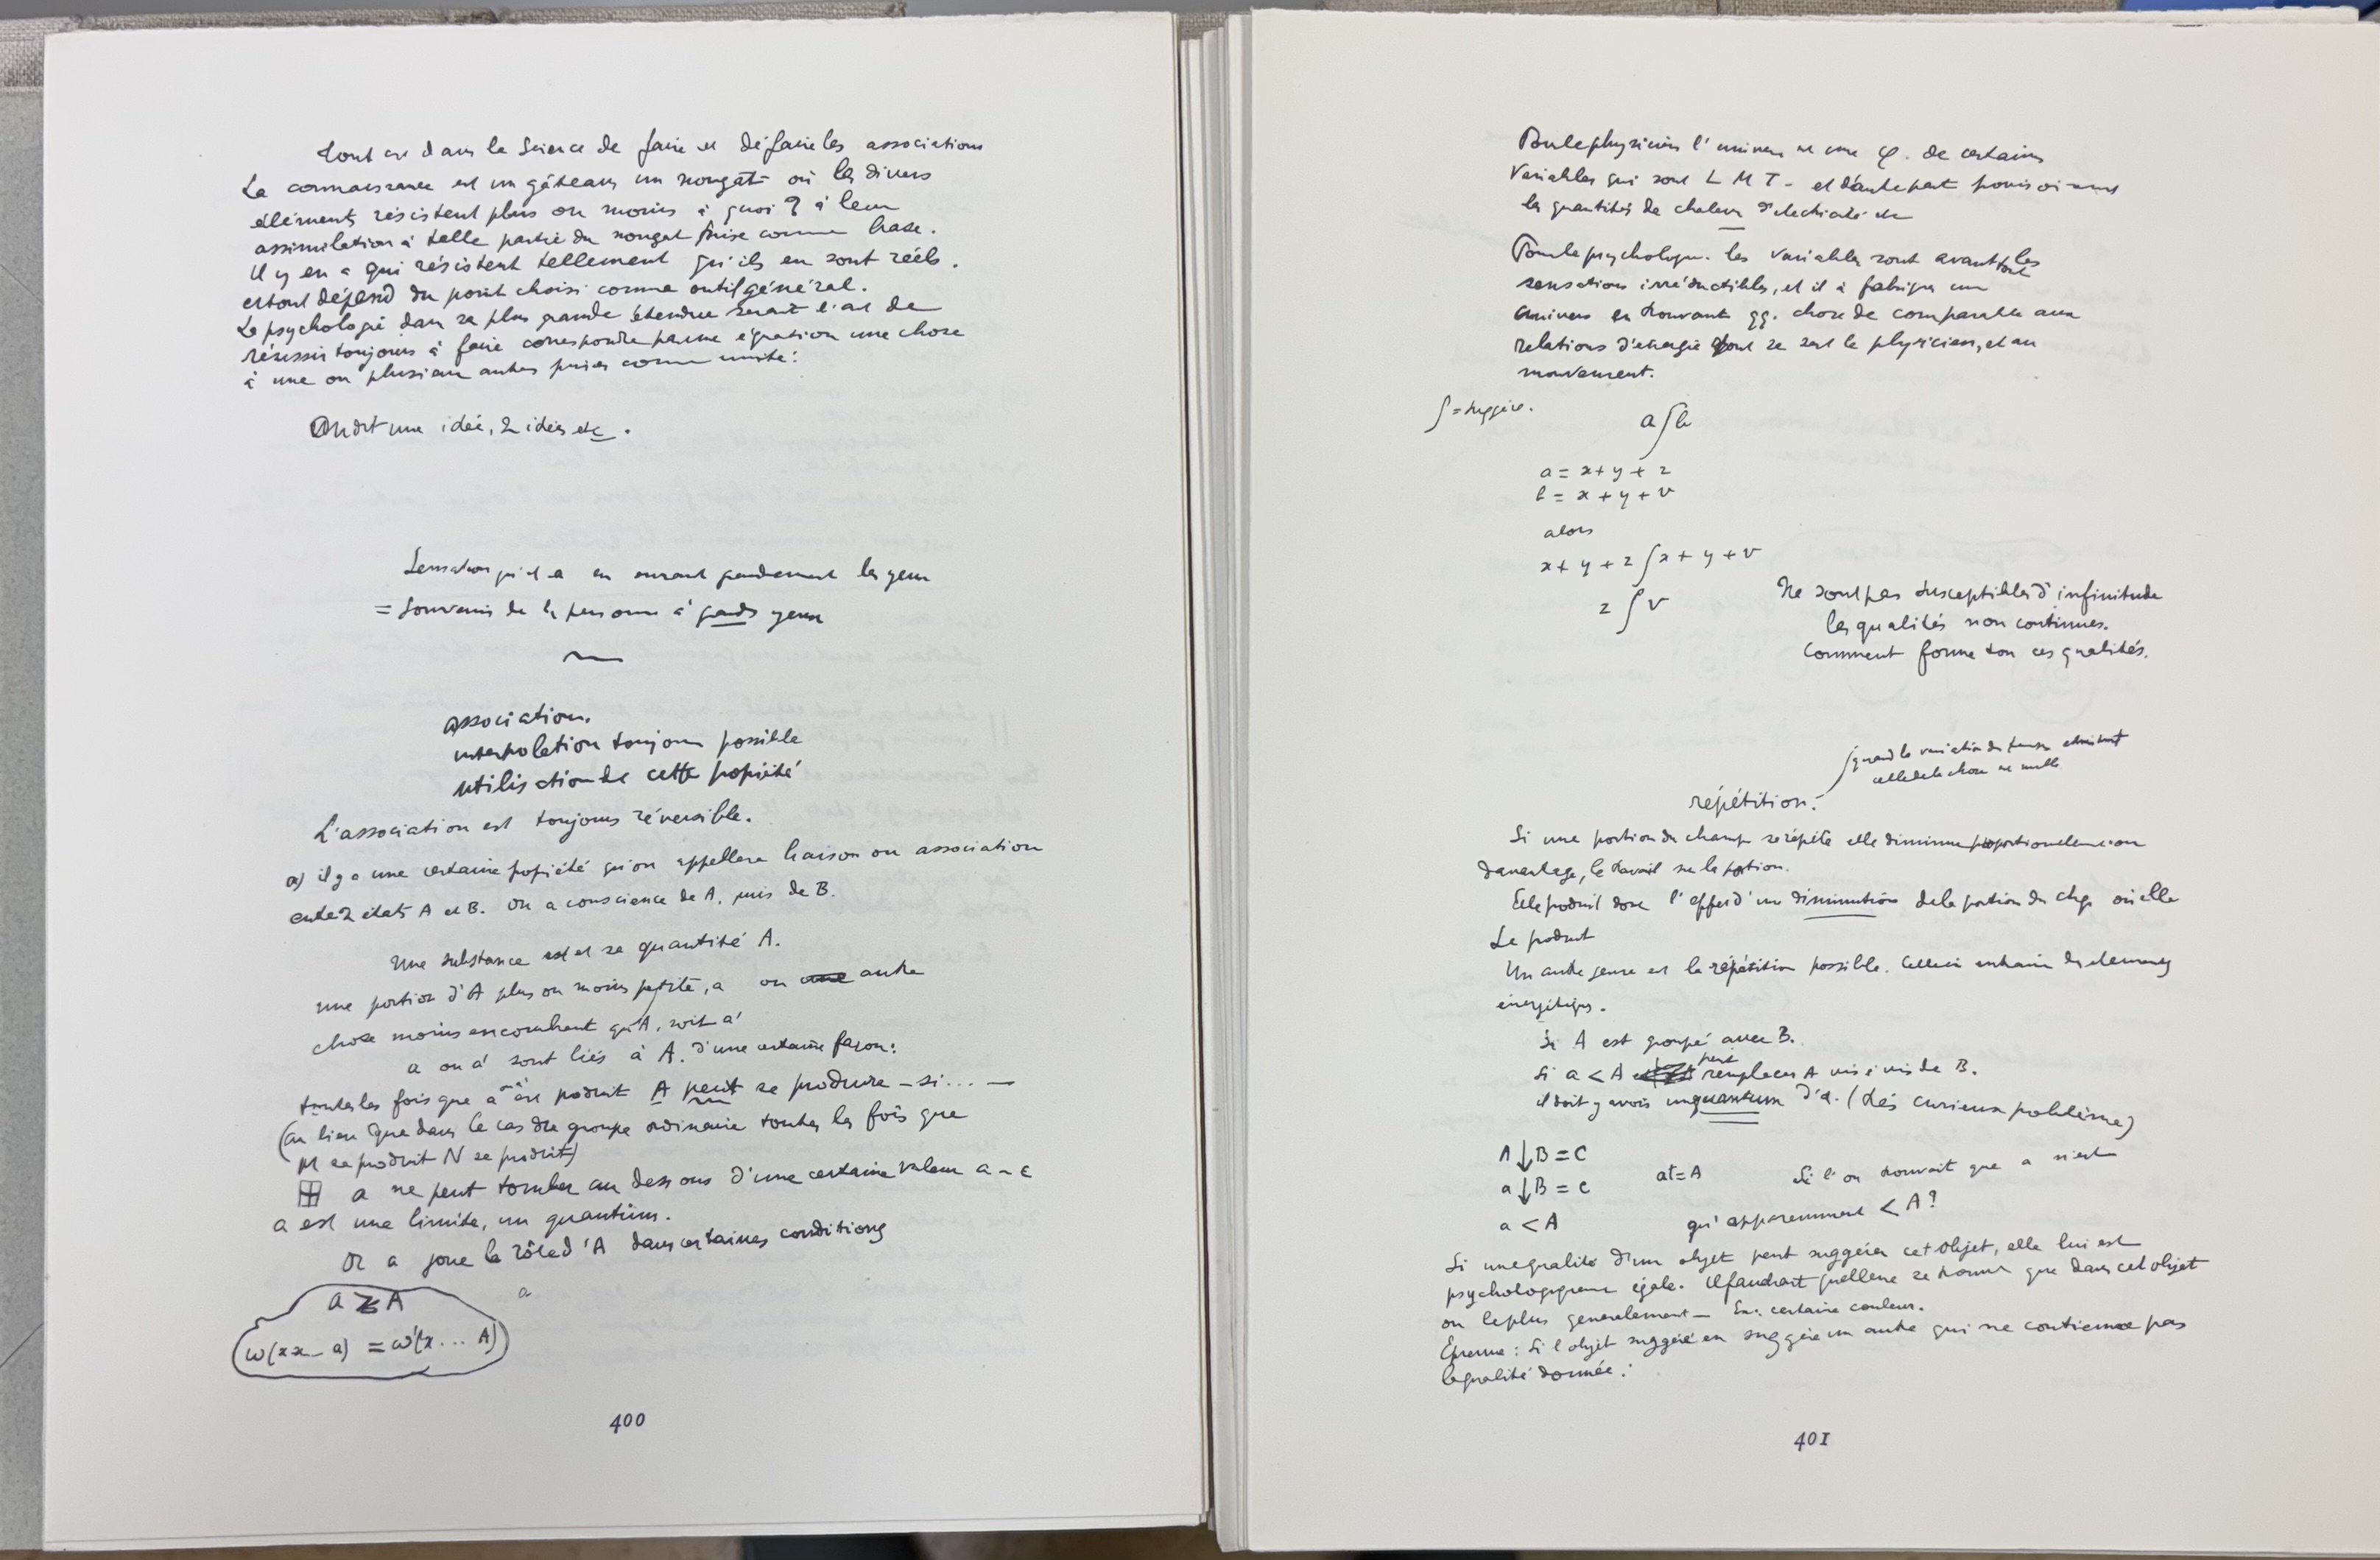 tout est dans la Science de faire et défaire les associations
La connaissance est un gâteau, un nougat où les divers
éléments résistent plus ou moins à quoi ? à leur
assimilation à telle partie du nougat prise comme base.
Il y en a qui résistent tellement qu'ils en sont réels.
et tout dépend du point choisi comme outil général.
La psychologie dans sa plus grande étendue serait l'art de
réussir toujours à faire correspondre par une équation une chose
à une ou plusieurs autres prises comme unité:
On dit une idée, 2 idées etc.
Sensation qu'il a en ouvrant grandement les yeux
= Souvenir de la personne à grands yeux
association.
interpolation toujours possible
utilisation de cette propriété
L'association est toujours réversible.
a) il y a une certaine propriété qu'on appellera liaison ou association
entre 2 états A et B. On a conscience de A, puis de B.
Une substance est et sa quantité A.
une portion d'A plus ou moins petite, a ou une autre
chose moins encombrant qu'A, soit a'
a ou a' sont liés à A. d'une certaine façon:
toutes les fois que a ou a' est produit A peut se produire – si... –
(au lieu que dans le cas du groupe ordinaire toutes les fois que
M se produit N se produit)
a ne peut tomber au dessous d'une certaine valeur a – ε
a est une limite, un quantum.
Or a joue le rôle d'A dans certaines conditions
a
a A
ω(xx – a) = ω'(x... A)
400
Pour le physicien l'univers est une φ. de certaines
Variables qui sont L M T – et d'autre part
les quantités de chaleur d'électricité etc
Pour le psychologue. les variables sont avant tout les
sensations irréductibles, et il a fabriqué un
univers en trouvant qq. chose de comparable aux
relations d'énergie dont se sert le physicien, et au
mouvement.
∫ = suggère.
a ∫ b
a = x + y + z
b = x + y + v
alors
x + y + z ∫ x + y + v
z ∫ v
Ne sont pas susceptibles d'infinitude
les qualités non continues.
Comment forme t on ces qualités.
quand la variation du temps
celle de la chose est nulle
répétition:
Si une portion du champ se répète elle diminue proportionnellement ou
davantage, le travail sur la portion.
Elle produit donc l'effet d'une diminution de la portion du chp où elle
Le produit
Un autre genre est la répétition possible. Celle ci entraîne des éléments
énergétiques.
Si A est groupé avec B.
Si a < A peut remplacer A vis à vis de B.
il doit y avoir un quantum d'a. (très curieux problème)
A ↓ B = C
a ↓ B = c
a < A
at = A
Si l'on trouvait que a n'est
qu'apparemment < A?
Si une qualité d'un objet peut suggérer cet objet, elle lui est
psychologiquement égale. Il faudrait qu'elle ne se trouve que dans cet objet
ou le plus généralement – Ex: certaine couleur.
Epreuve: Si l'objet suggéré en suggère un autre qui ne contienne pas
la qualité donnée:
401